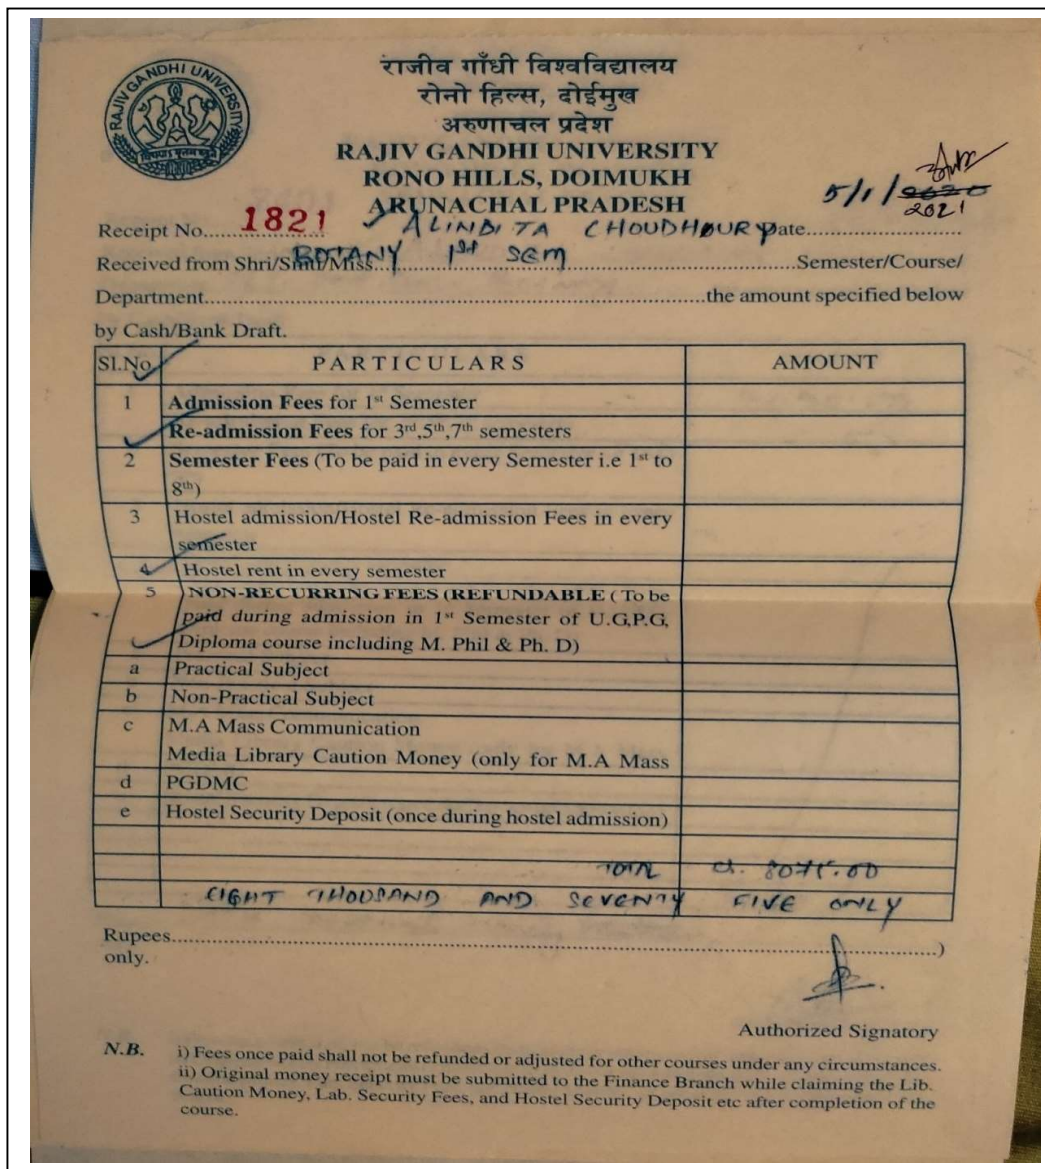 RAJIV GANDHI UNIVERSITY
राजीव गाँधी विश्वविद्यालय
रोनो हिल्स, दोईमुख
अरुणाचल प्रदेश
RAJIV GANDHI UNIVERSITY
RONO HILLS, DOIMUKH
ARUNACHAL PRADESH
5/1/2020
2021
Receipt No.....1821 ALINDITA CHOUDHOURY Date..........................
BOTANY 1st SEM
Received from Shri/Smti/Miss..........................Semester/Course/
Department..........................the amount specified below
by Cash/Bank Draft.
Sl.No. PARTICULARS AMOUNT
1 Admission Fees for 1st Semester
Re-admission Fees for 3rd,5th,7th semesters
2 Semester Fees (To be paid in every Semester i.e 1st to
8th)
3 Hostel admission/Hostel Re-admission Fees in every
semester
4 Hostel rent in every semester
5 NON-RECURRING FEES (REFUNDABLE ( To be
paid during admission in 1st Semester of U.G,P.G,
Diploma course including M. Phil & Ph. D)
a Practical Subject
b Non-Practical Subject
c M.A Mass Communication
Media Library Caution Money (only for M.A Mass
d PGDMC
e Hostel Security Deposit (once during hostel admission)
TOTAL 8075.00
EIGHT THOUSAND AND SEVENTY FIVE ONLY
Rupees..........................)
only.
Authorized Signatory
N.B. i) Fees once paid shall not be refunded or adjusted for other courses under any circumstances.
ii) Original money receipt must be submitted to the Finance Branch while claiming the Lib.
Caution Money, Lab. Security Fees, and Hostel Security Deposit etc after completion of the
course.